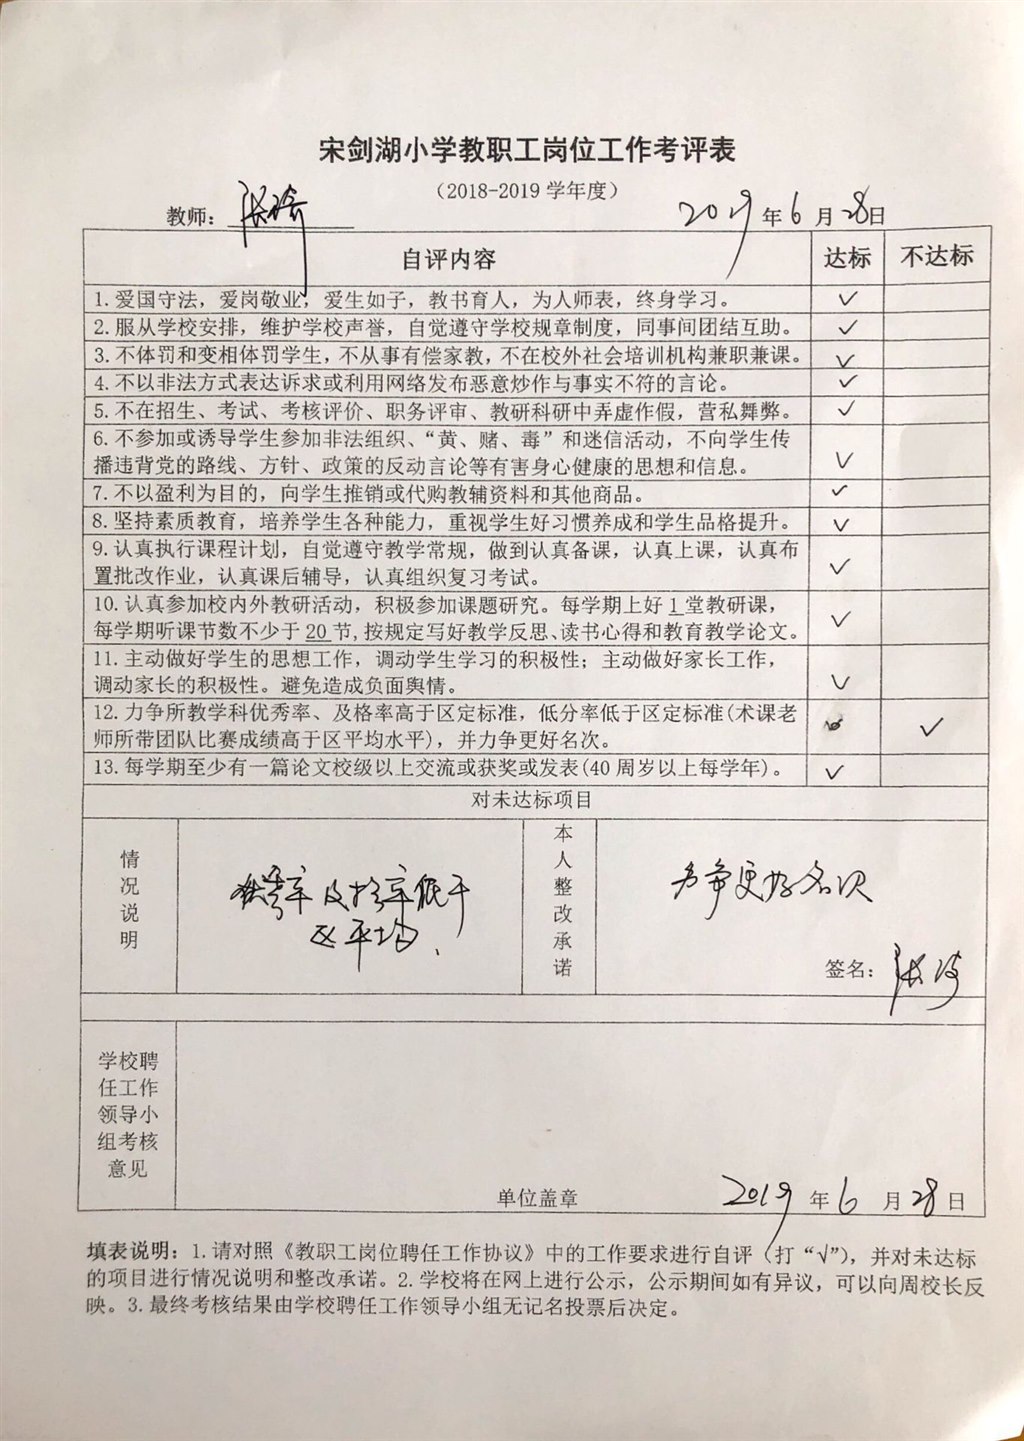 宋剑湖小学教职工岗位工作考评表
（2018-2019 学年度）
教师： 2019 年 6 月 28 日
自评内容 达标 不达标
1. 爱国守法，爱岗敬业，爱生如子，教书育人，为人师表，终身学习。 ✓
2. 服从学校安排，维护学校声誉，自觉遵守学校规章制度，同事间团结互助。 ✓
3. 不体罚和变相体罚学生，不从事有偿家教，不在校外社会培训机构兼职兼课。 ✓
4. 不以非法方式表达诉求或利用网络发布恶意炒作与事实不符的言论。 ✓
5. 不在招生、考试、考核评价、职务评审、教研科研中弄虚作假，营私舞弊。 ✓
6. 不参加或诱导学生参加非法组织、“黄、赌、毒”和迷信活动，不向学生传
播违背党的路线、方针、政策的反动言论等有害身心健康的思想和信息。 ✓
7. 不以盈利为目的，向学生推销或代购教辅资料和其他商品。 ✓
8. 坚持素质教育，培养学生各种能力，重视学生好习惯养成和学生品格提升。 ✓
9. 认真执行课程计划，自觉遵守教学常规，做到认真备课，认真上课，认真布
置批改作业，认真课后辅导，认真组织复习考试。 ✓
10. 认真参加校内外教研活动，积极参加课题研究。每学期上好 1 堂教研课，
每学期听课节数不少于 20 节，按规定写好教学反思、读书心得和教育教学论文。 ✓
11. 主动做好学生的思想工作，调动学生学习的积极性；主动做好家长工作，
调动家长的积极性。避免造成负面舆情。 ✓
12. 力争所教学科优秀率、及格率高于区定标准，低分率低于区定标准(术课老
师所带团队比赛成绩高于区平均水平)，并力争更好名次。 ✓
13. 每学期至少有一篇论文校级以上交流或获奖或发表(40 周岁以上每学年)。 ✓
对未达标项目
情况说明
率及格率低于
区平均.
本人整改承诺
力争更好名次
签名： 张
学校聘
任工作
领导小
组考核
意见
单位盖章 2019 年 6 月 28 日
填表说明：1. 请对照《教职工岗位聘任工作协议》中的工作要求进行自评（打“√”)，并对未达标
的项目进行情况说明和整改承诺。2. 学校将在网上进行公示，公示期间如有异议，可以向周校长反
映。3. 最终考核结果由学校聘任工作领导小组无记名投票后决定。